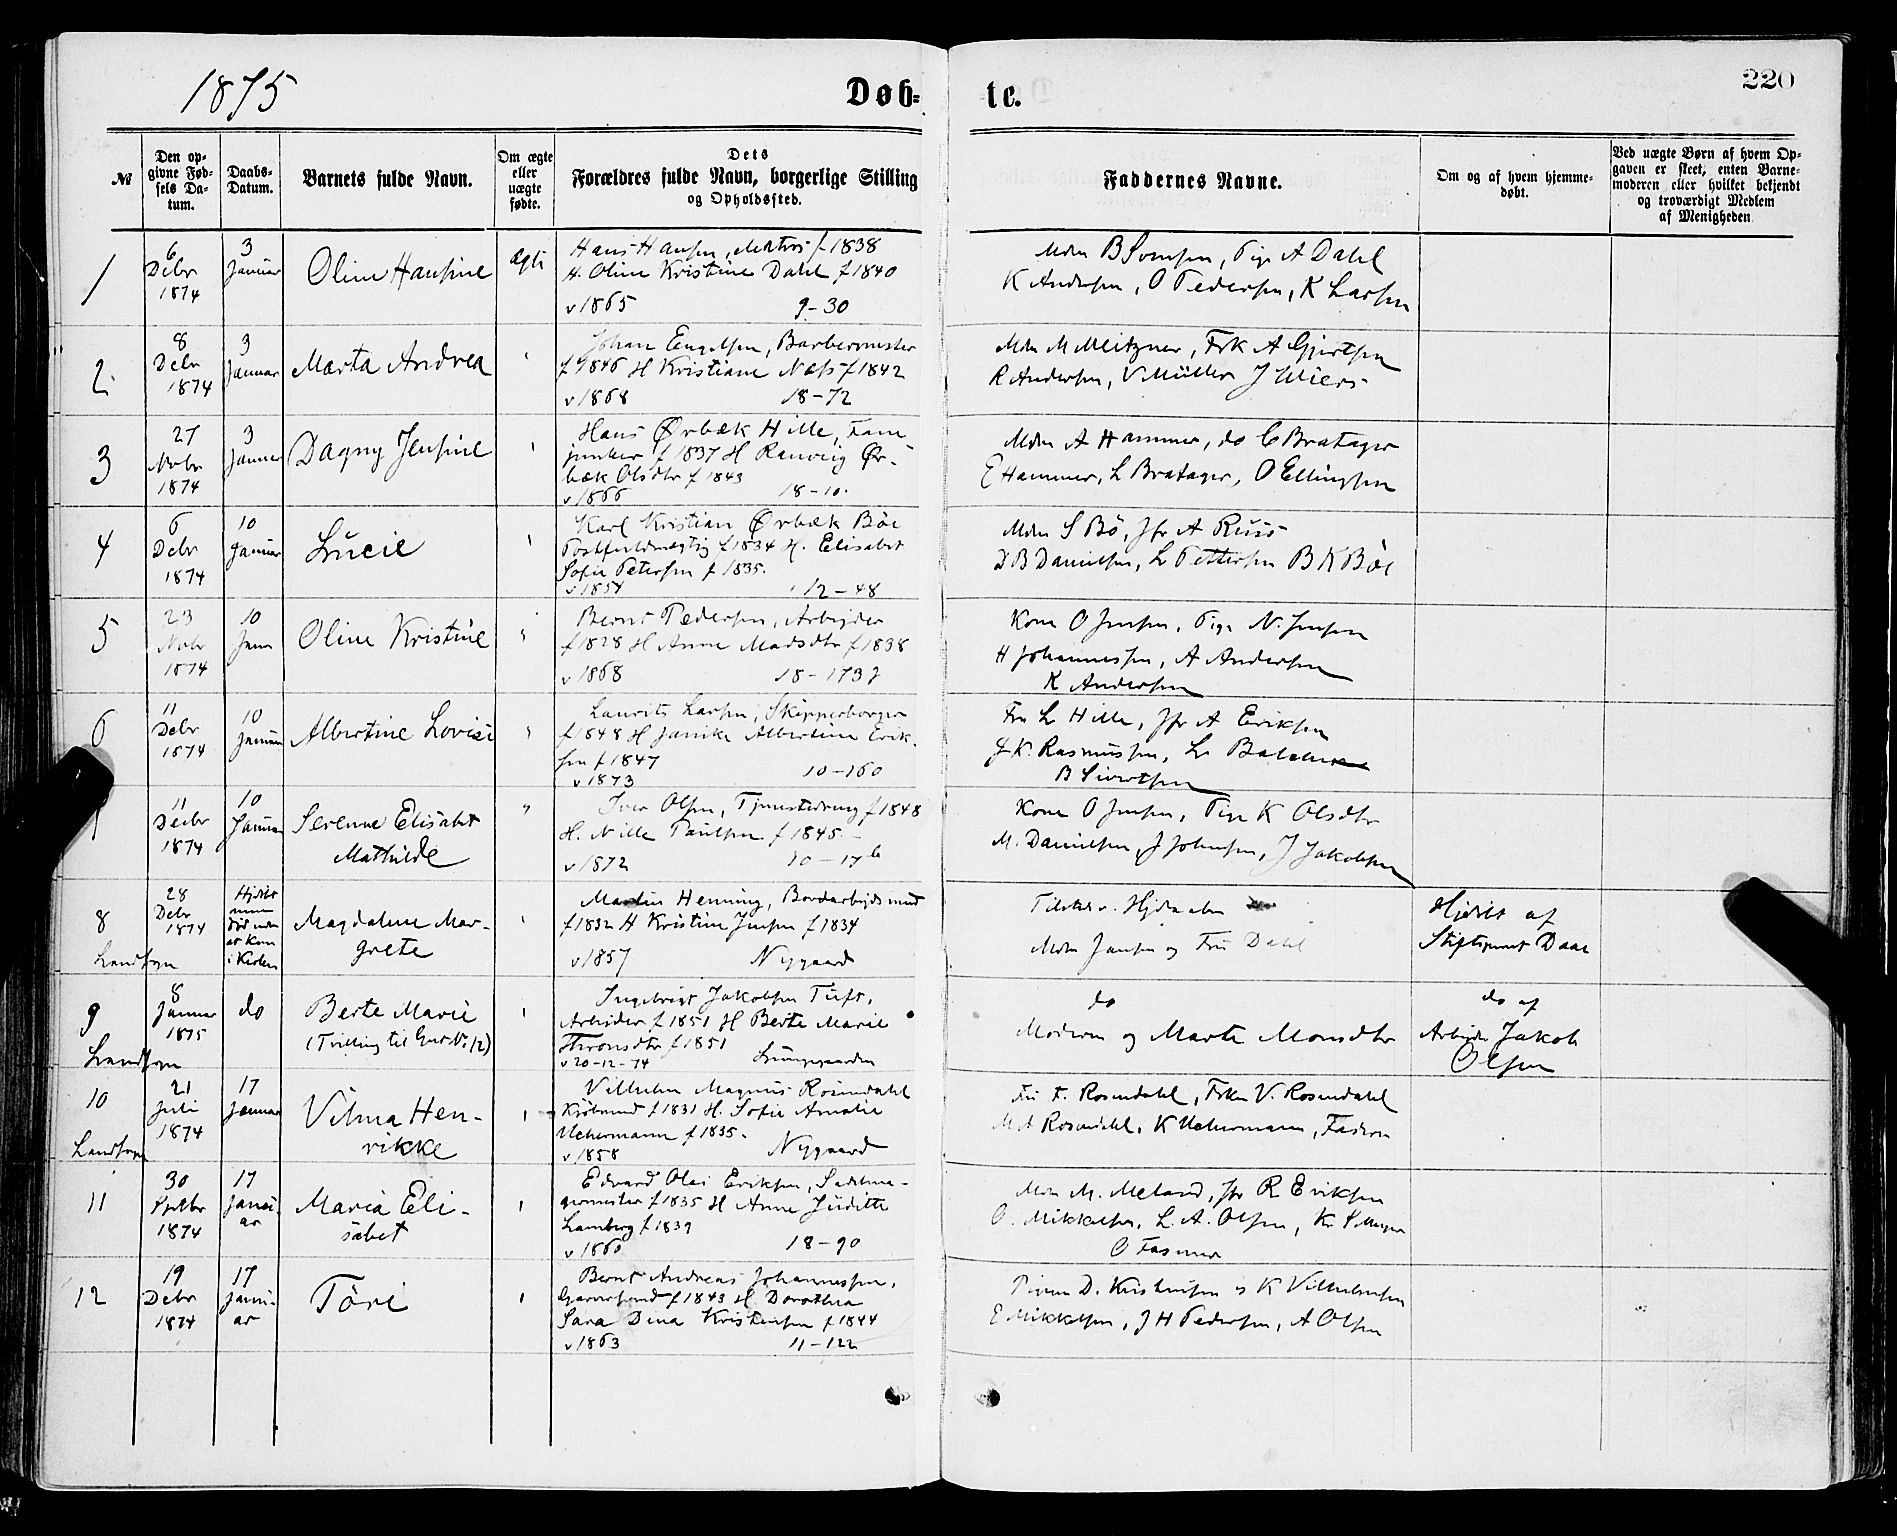 1875
Døb-
te.
220
№
Den op-
givne Fød-
sels Da-
tum.
Daabs-
Datum.
Barnets fulde Navn.
Om ægte
eller
uægte
fødte.
Dets
Forældres fulde Navn, borgerlige Stilling
og Opholdssted.
Faddernes Navne.
Om og af hvem hjemme-
døbt.
Ved uægte Børn af hvem Op-
gaven er skeet, enten Barne-
moderen eller hvilket bekjendt
og troværdigt Medlem
af Menigheden
1
6
Debr
1874
3
Januar
Oline Hansine
ægte
Hans Hansen, Matros f 1838
H. Oline Kristine Dahl f 1840
v 1865 9-30
Mdm B Svensen, Pige A Dahl
K Andersen, O Pedersen, K Larsen
2
8
Debr
1874
3
Januar
Marta Andrea
Johan Engelsen, Barbermester
f 1846 H Kristiane Næss f 1842
v 1868 18-72
Mdm M Meitzner, Frk A Gjertsen
R Andersen, V Müller J Wiers
3
27
Novbr
1874
3
Januar
Dagny Jensine
Hans Ørbæk Hille, Fane
junker f 1837 H Ranveig Ør-
bæk Olsdtr f 1843
v 1866 18-10.
Mdm A Hammer, do C Bratager
E Hammer, L Bratager, O Ellingsen
4
6
Debr
1874
10
Januar
Lucie
Karl Kristian Ørbæk Böe
Postfuldmægtig f 1834 H. Elisabet
Sofie Petersen f 1835.
v 1854 12-48
Mdm S Bö, Jfr A Russ
D B Danielsen, L Pettersen B K Böe
5
23
Novbr
1874
10
Janu
Oline Kristine
Bernt Pedersen, Arbeider
f 1828 H Anne Madsdtr f 1838
v 1868 18-173
Kone O Jensen, Pige N. Jensen
H Johannessen, A Andersen
K Andersen
6
11
Debr
1874
10
Januar
Albertine Lovise
Laurits Larsen, Skipperborger
f 1848 H Janike Albertine Erik-
sen f 1847
v 1873 10-160
Fru L Hille, Jfr A Eriksen
J K. Rasmussen, L
B Sivertsen
11
Decbr
1874
10
Januar
Serenne Elisabet
Mathilde
Iver Olsen, Tjenestedreng f 1848
H. Nille Paulsen f 1845
v 1872 10-17b
Kone O Jensen, Pige K Olsdtr
M. Danielsen, J Johnsen, J Jakobsen
8
Landsogn
28
Debr
1874
Magdalene Mar-
grete
Martin Henning, Bordarbeidsmand
f 1832 H Kristine Jensen f 1834
v 1857 Nygaard
Tilstede v. Hjdaaben
Mdm Jansen og Fru Dahl
Hjdøbt af
Stiftsprovst Daae
9
Landsogn
8
Januar
1875
do
Berte Marie
(Tvilling til No 12)
Ingebrigt Jakobsen Tuft,
Arbeider f 1851 H Berte Marie
Thronsdtr f 1851
v 20-12-74
do
Moderen og Marte Monsdtr
do af
Arbeider Jakob
Olsen
10
Landsogn
21
Juli
1874
17
Januar
Vilma Hen-
rikke
Vilhelm Magnus Rosendahl
Kjøbmand f 1831 H. Sofie Amalie
Uchermann f 1835.
v 1858 Nygaard
Fru F. Rosendahl, Frkn V. Rosendahl
M A Rosendahl, K Uchermann, Faderen
11
30
Septbr
1874
17
Janu-
ar
Maria Eli-
sabet
Edvard Olai Eriksen, Sadelma-
germester f 1835 H Anne Juditte
Lamberg f 1839
v 1860 18-90
Mdm M. Meland, Jfr R Eriksen
O. Mikkelsen, L. A. Olsen, K. S Meyer
O Fasmer
12
19
Debr
1874
17
Janu-
ar
Tōri
Bernt Andreas Johannessen,
Garversvend f 1843 H Dorothea
Sara Dina Kristensen f 1844
v 1863 11-122
Pigerne D. Kristensen og K Vilhelmsen
E Mikkelsen, J H Pedersen, A Olsen